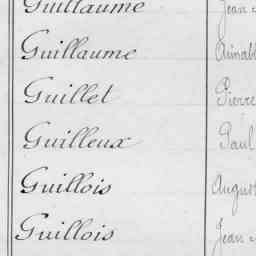 Guillaume Jean
Guillaume
Guillet Pierre
Guilleux Paul
Guillois
Guillois Jean